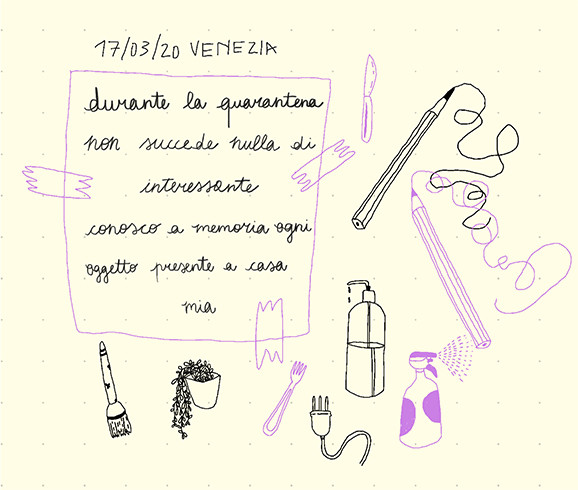 17/03/20 VENEZIA
durante la quarantena
non succede nulla di
interessante
conosco a memoria ogni
oggetto presente a casa
mia